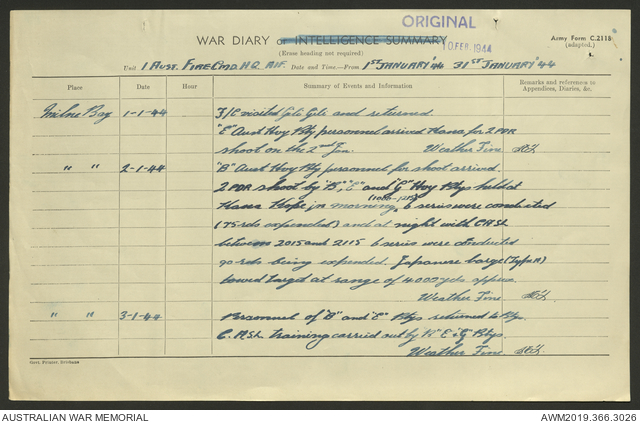 ORIGINAL
WAR DIARY or INTELLIGENCE SUMMARY
10 FEB 1944
(Erase heading not required)
Army Form C.2118
(adapted.)
Unit 1 Aust. Fire Cmd. H.Q. A.I.F. Date and Time—From 1st January '44 31st January '44
Place Date Hour Summary of Events and Information Remarks and references to Appendices, Diaries, &c.
Milne Bay 1-1-44 F/C visited Gili Gili and returned
"E" Aust Hvy Bty personnel arrived Hana for 2 PDR
shoot on the 2nd Jan. Weather Fine
" " 2-1-44 "B" Aust Hvy Bty personnel for shoot arrived.
2 PDR shoot by "B", "E" and "G" Hvy Btys held at
(1000-1215)
Hana Hope in morning, 6 series were conducted
(75 rds expended) and at night with CASL
between 2015 and 2115 6 series were conducted
90 rds being expended. Japanese barge (Type A)
towed target at range of 4000 yds approx.
Weather Fine.
" " 3-1-44 Personnel of "B" and "E" Btys returned to Btys.
C.A.S.L. training carried out by "B" "E" & "G" Btys.
Weather Fine.
Govt. Printer, Brisbane
AUSTRALIAN WAR MEMORIAL AWM2019.366.3026